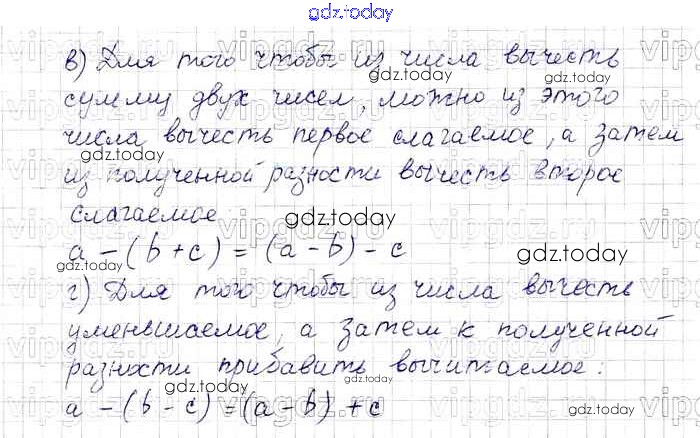 gdz.today
в) Для того чтобы из числа вычесть
сумму двух чисел, можно из этого
числа вычесть первое слагаемое, а затем
из полученной разности вычесть второе
слагаемое
a - (b + c) = (a - b) - c
г) Для того чтобы из числа вычесть
уменьшаемое, а затем к полученной
разности прибавить вычитаемое:
a - (b - c) = (a - b) + c
gdz.today
gdz.today
gdz.today
gdz.today
gdz.today
gdz.today
gdz.today
gdz.today
gdz.today
gdz.today